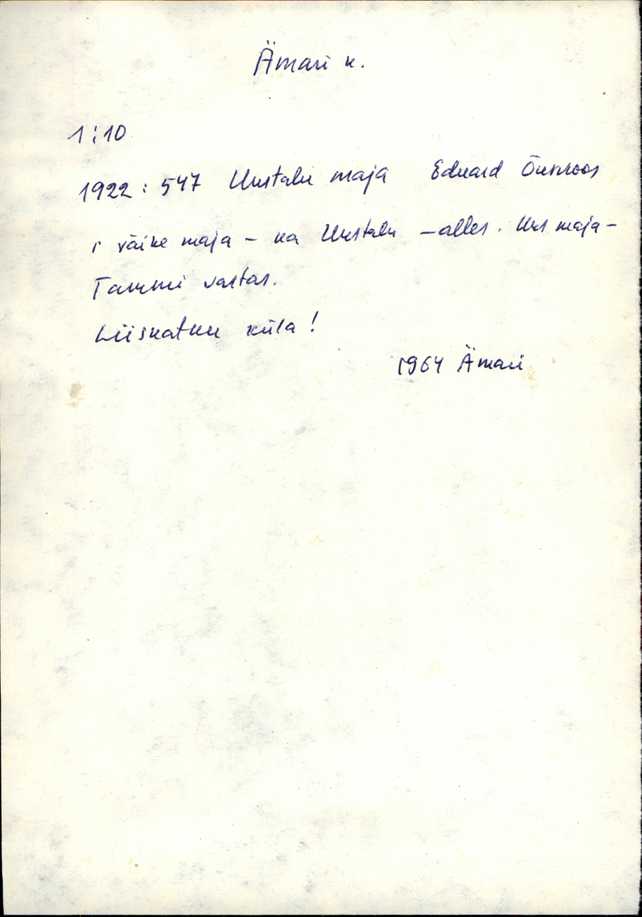 Ämari k.
1:10
1922: 547 Uustalu maja Eduard
1 väike maja – ka Uustalu – alles. Uus maja –
Tammi vastas.
küla!
1964 Ämari